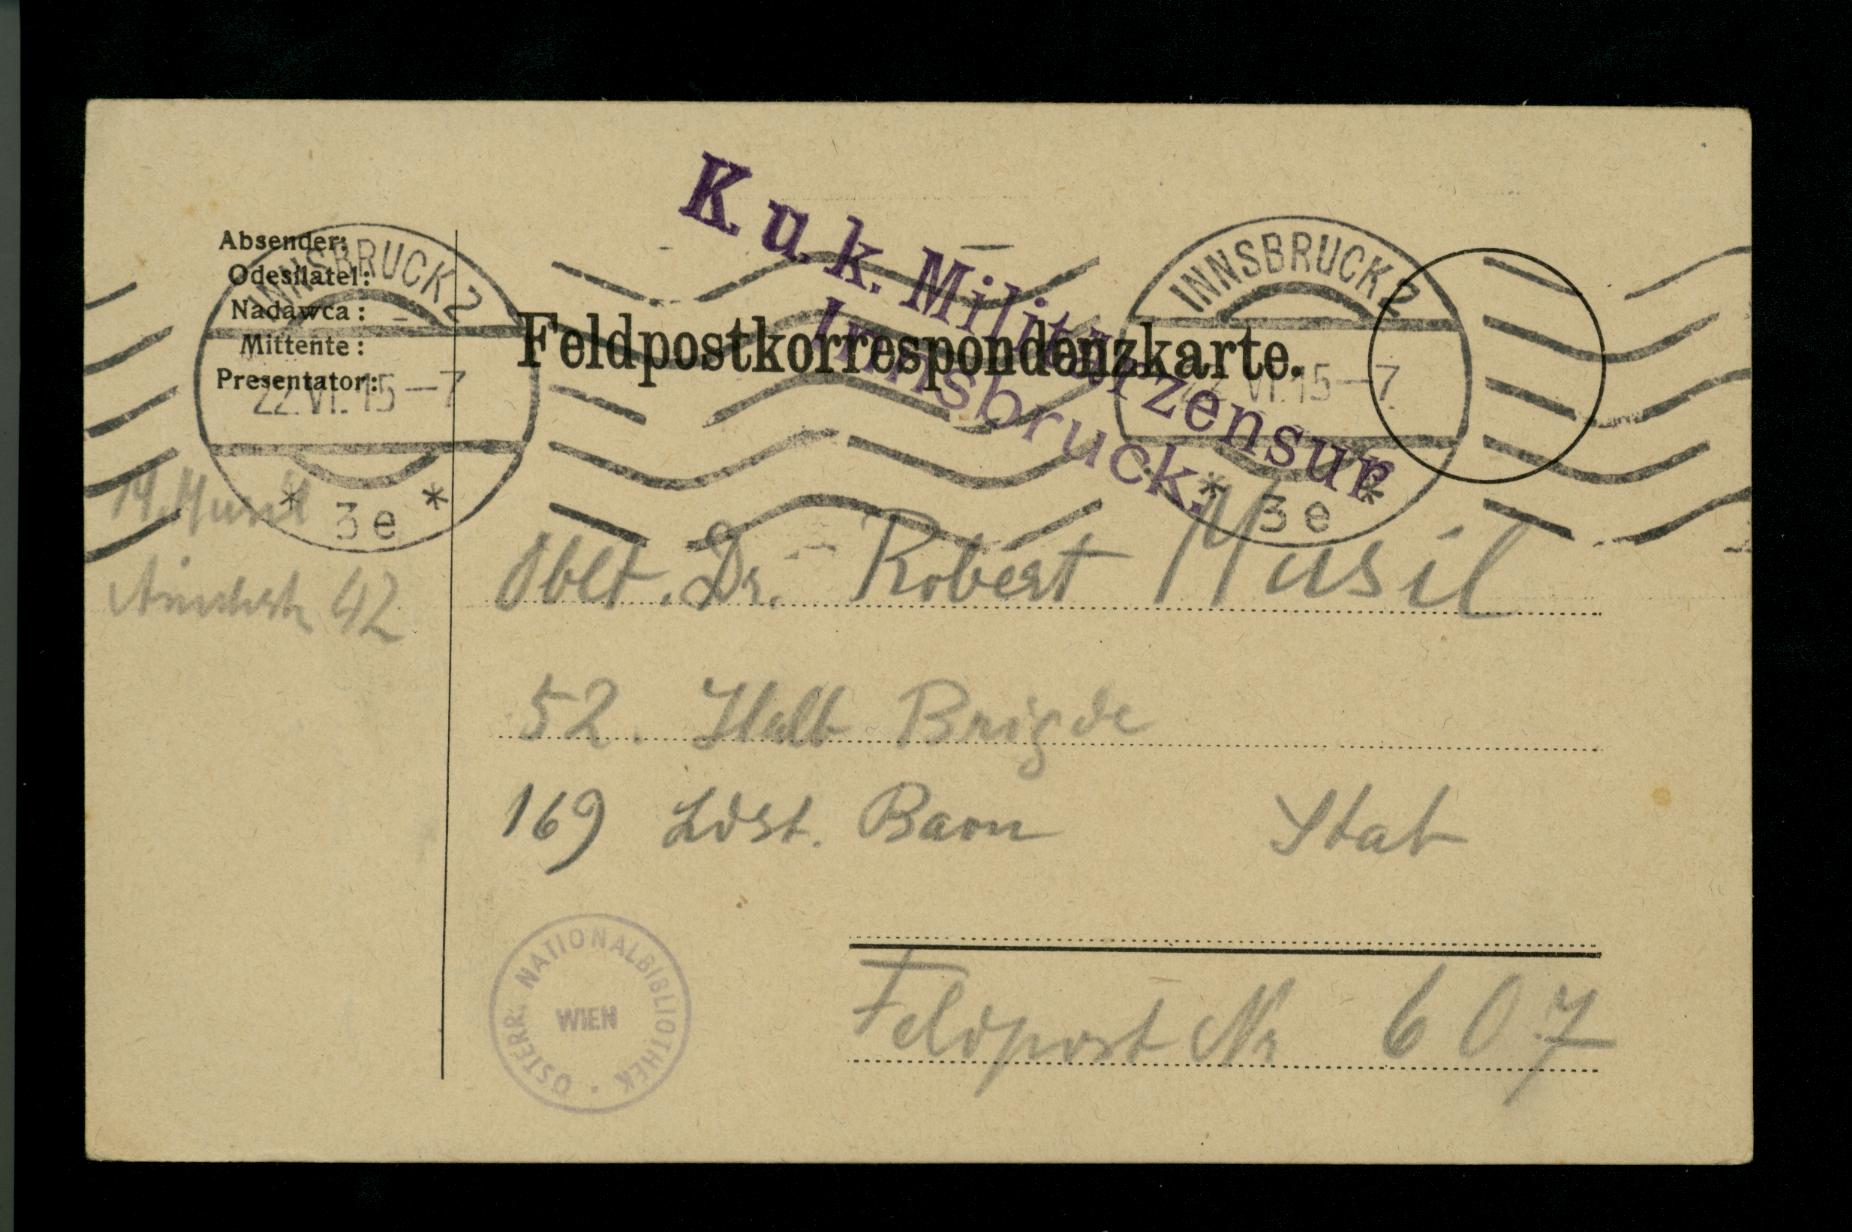 Absender:
Odesílatel:
Nadawca:
Mittente:
Presentator:
INNSBRUCK 2
22.VI.15–7
* 3e *
K. u. k. Militärzensur
Innsbruck.
INNSBRUCK 2
22.VI.15–7
* 3e *
Feldpostkorrespondenzkarte.
M. Musil
42
Oblt. Dr. Robert Musil
52. Halb Brigde
169 Ldst. Baon Stab
Feldpost Nr 607
ÖSTERR. NATIONALBIBLIOTHEK
WIEN